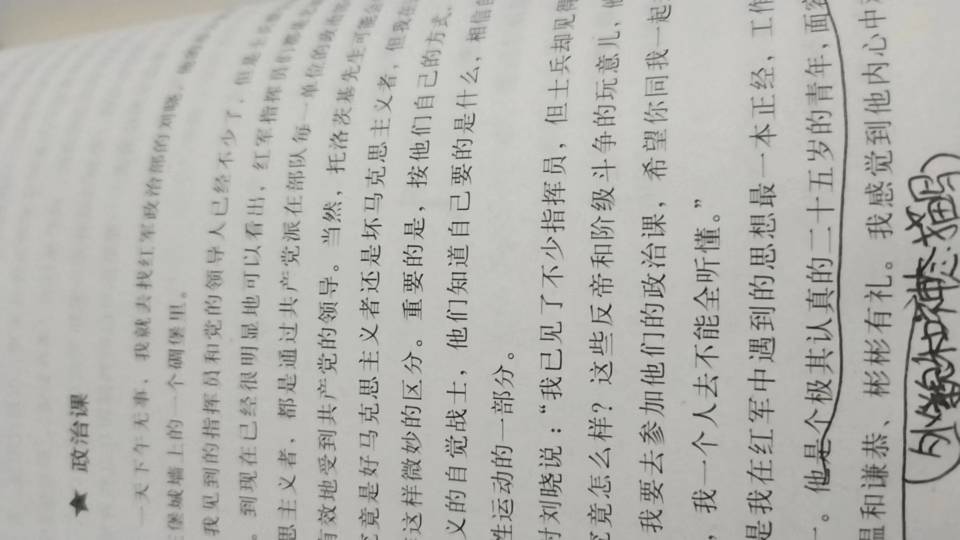 ★ 政治课
一天下午无事，我就去找红军政治部的刘晓，
堡城墙上的一个碉堡里。
我见到的指挥员和党的领导人已经不少了，但是
。到现在已经很明显地可以看出，红军指挥员们都是
思主义者，都是通过共产党派在部队每一单位的政治部
有效地受到共产党的领导。当然，托洛茨基先生可能会
究竟是好马克思主义者还是坏马克思主义者，但我在
这样微妙的区分。重要的是，按他们自己的方式，
义的自觉战士，他们知道自己要的是什么，相信
性运动的一部分。
对刘晓说：“我已见了不少指挥员，但士兵却见得
究竟怎么样？这些反帝和阶级斗争的玩意儿，他
我要去参加他们的政治课，希望你同我一起
，我一个人去不能全听懂。”
是我在红军中遇到的思想最一本正经，工作
。他是个极其认真的二十五岁的青年，面容
温和谦恭、彬彬有礼。我感觉到他内心中
外貌和神态描写